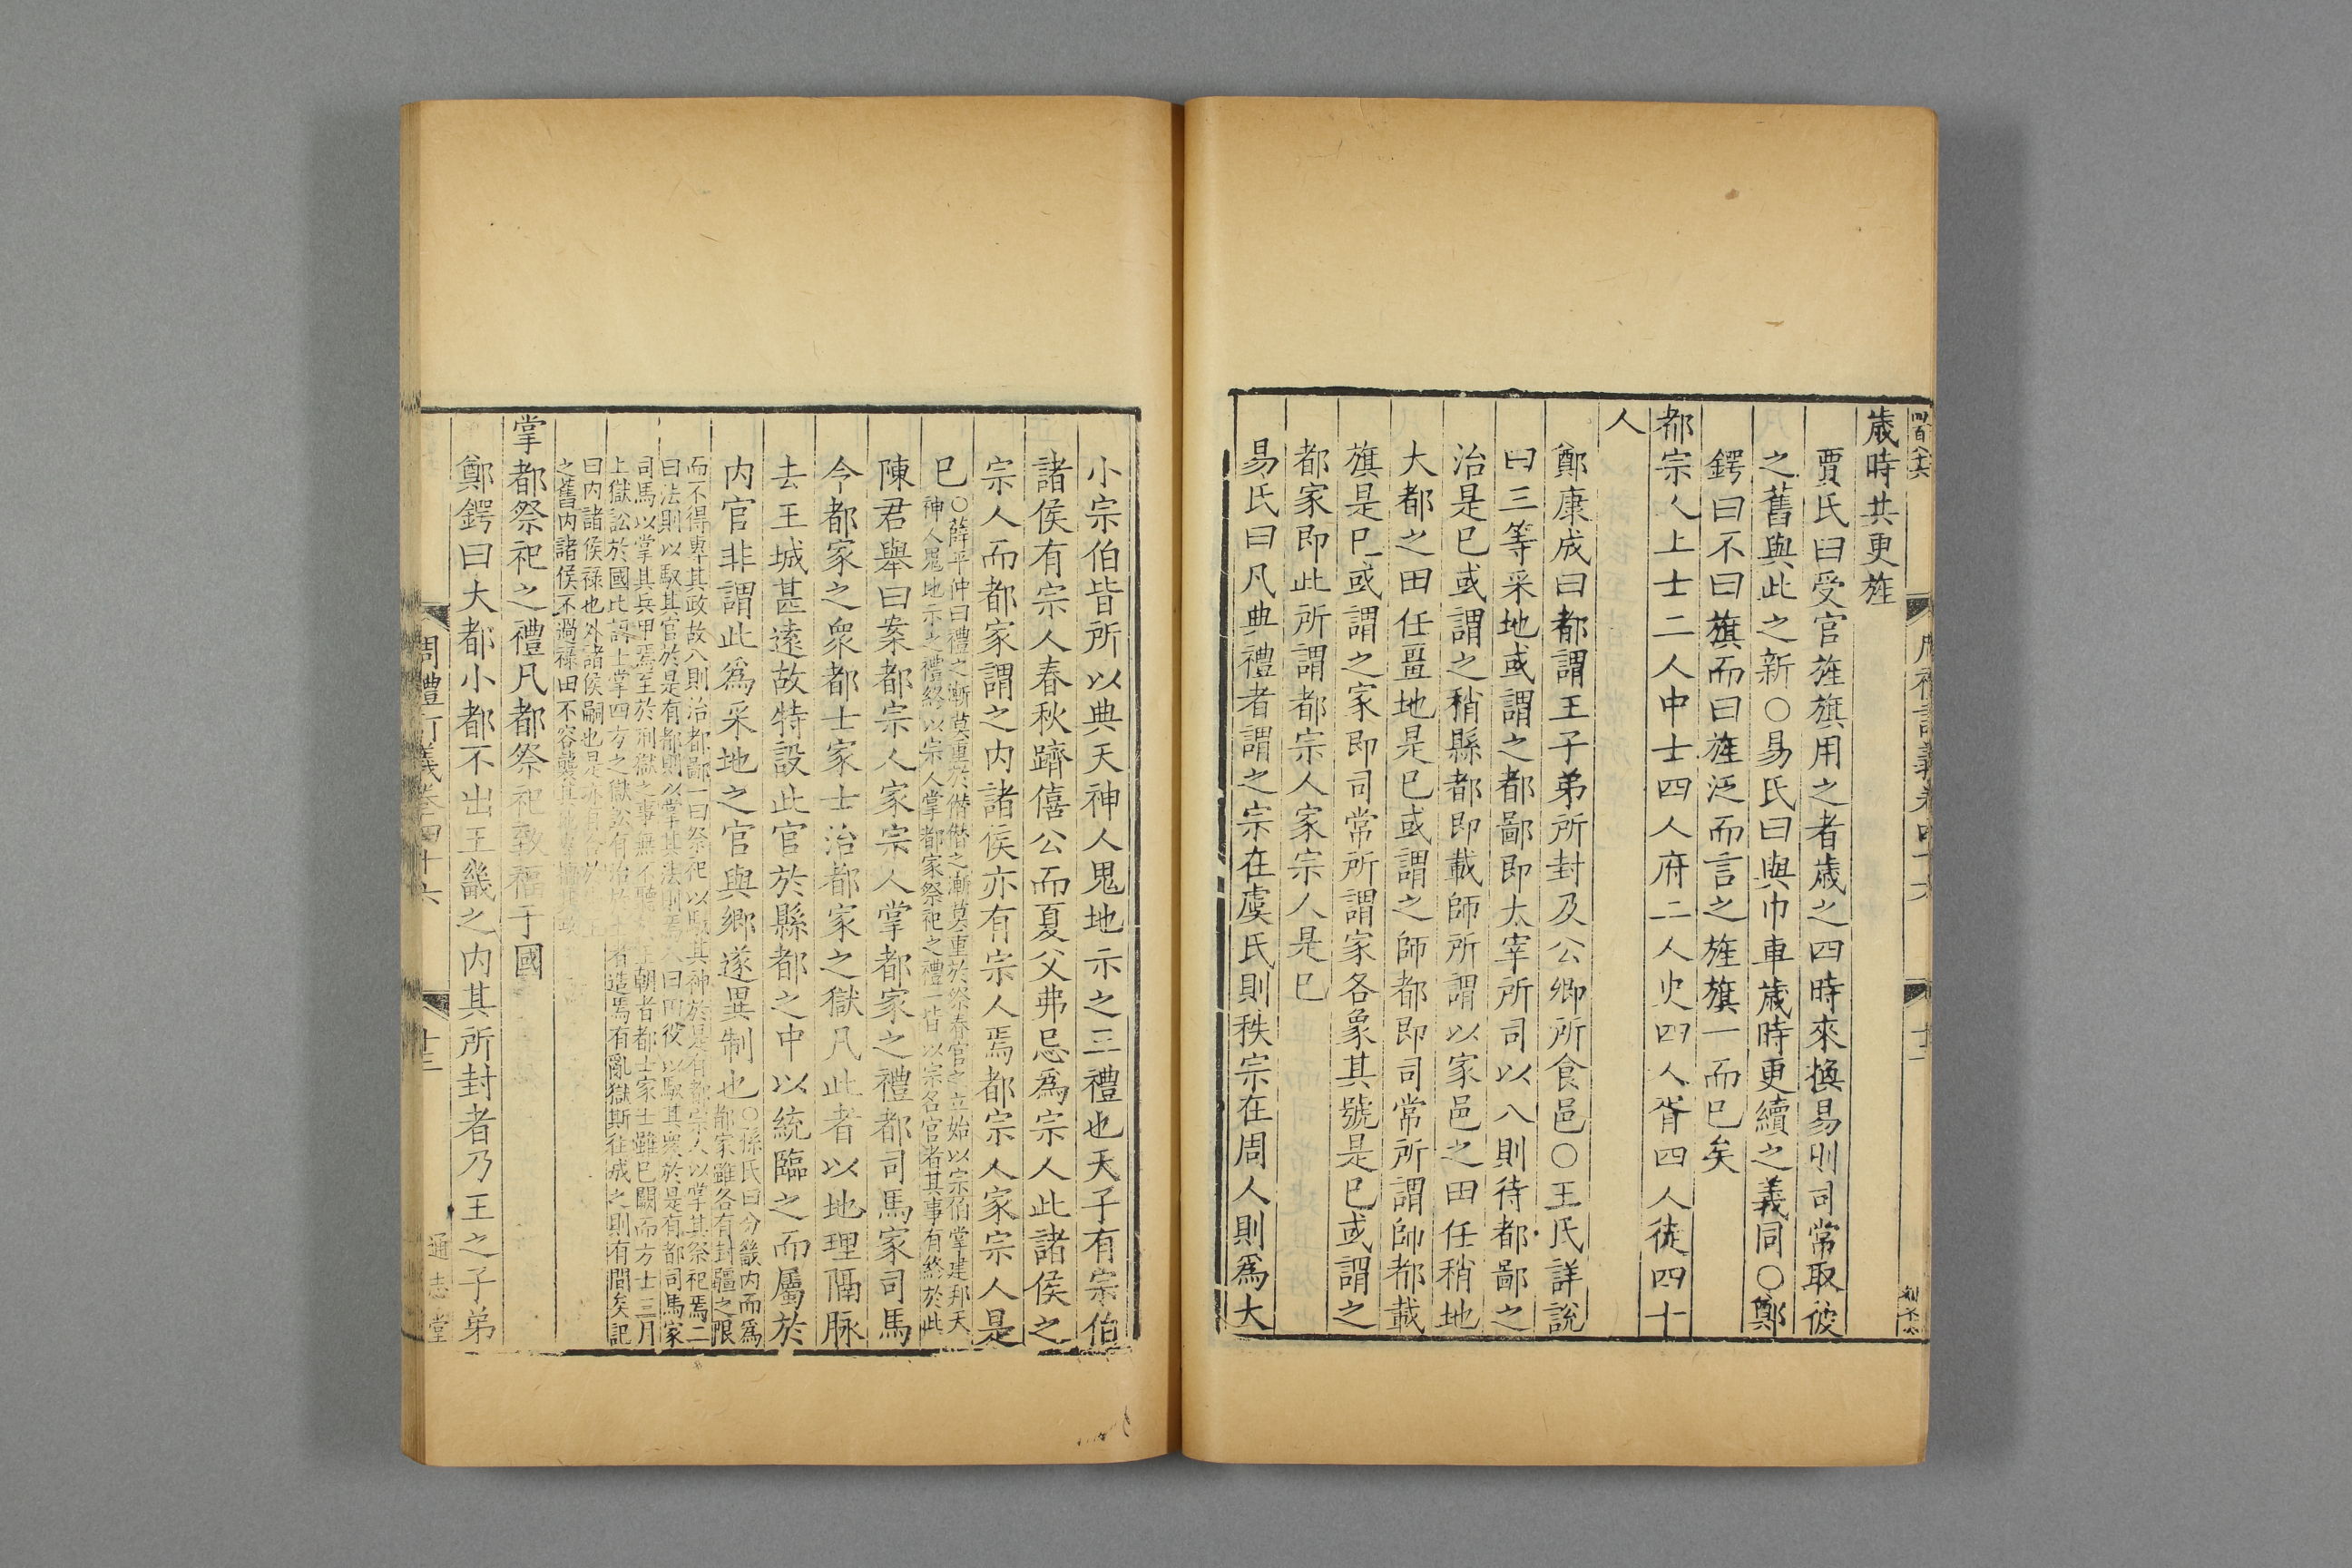 歲時共更旌
賈氏曰受官旌旗用之者歲之四時來換易則司常取彼
之舊與此之新○易氏曰與巾車歲時更續之義同○鄭
鍔曰不曰旗而曰旌泛而言之旌旗一而巳矣
都宗人上士二人中士四人府二人史四人胥四人徒四十
人
鄭康成曰都謂王子弟所封及公卿所食邑○王氏詳說
曰三等采地或謂之都鄙即太宰所司以八則待都鄙之
治是巳或謂之稍縣都即載師所謂以家邑之田任稍地
大都之田任畺地是巳或謂之師都即司常所謂師都載
旗是巳或謂之家即司常所謂家各象其號是巳或謂之
都家即此所謂都宗人家宗人是巳
易氏曰凡典禮者謂之宗在虞氏則秩宗在周人則爲大
小宗伯皆所以典天神人鬼地示之三禮也天子有宗伯
諸侯有宗人春秋躋僖公而夏父弗忌爲宗人此諸侯之
宗人而都家謂之内諸侯亦有宗人焉都宗人家宗人是
巳
○薛平仲曰禮之漸莫重於僭僭之漸莫重於祭春官之立始以宗伯掌建邦天
神人鬼地示之禮終以宗人掌都家祭祀之禮一皆以宗名官者其事有終於此
陳君舉曰案都宗人家宗人掌都家之禮都司馬家司馬
今都家之衆都士家士治都家之獄凡此者以地理隔脉
去王城甚遠故特設此官於縣都之中以統臨之而屬於
内官非謂此爲采地之官與鄉遂異制也
○孫氏曰分畿内而爲
都家雖各有封疆之限
而不得專其政故八則治都鄙一曰祭祀以馭其神於是有都宗人以掌其祭祀焉二
曰法則以馭其官於是有都則以掌其法則焉八曰田役以馭其衆於是有都司馬家
司馬以掌其兵甲焉至於刑獄之事無不聽於王朝者都士家士雖巳闕而方士三月
上獄訟於國比訝士掌四方之獄訟有治於士者造焉有亂獄斯往成之則有間矣記
曰内諸侯禄也外諸侯嗣也是
之舊内諸侯不過禄田不容襲其
掌都祭祀之禮凡都祭祀致福于國
鄭鍔曰大都小都不出王畿之内其所封者乃王之子弟
周禮訂義卷四十六
十三
通志堂